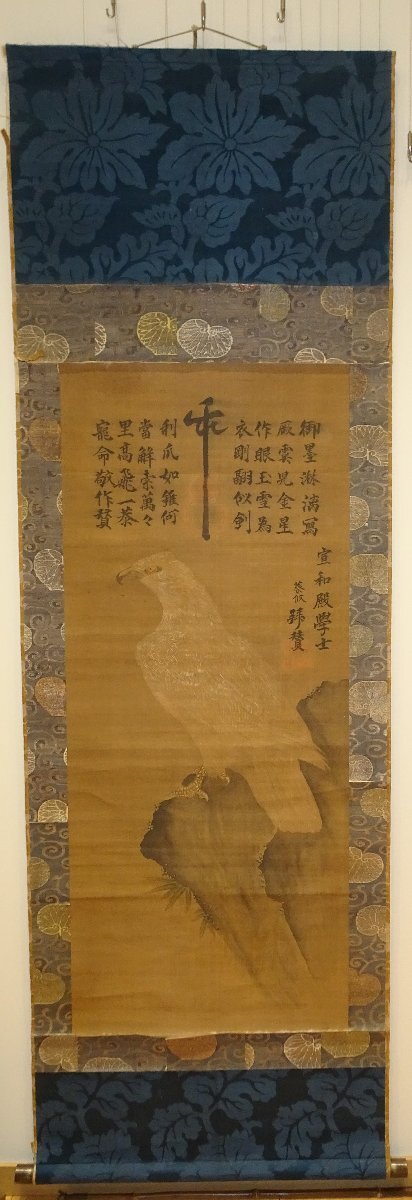 御墨淋漓寫
厥雲金星
作眼玉雪為
衣剛翮似劍
利爪如錐何
當解索萬々
里高飛一恭
寵命敬作賛
宣和殿學士
蔡攸
賛